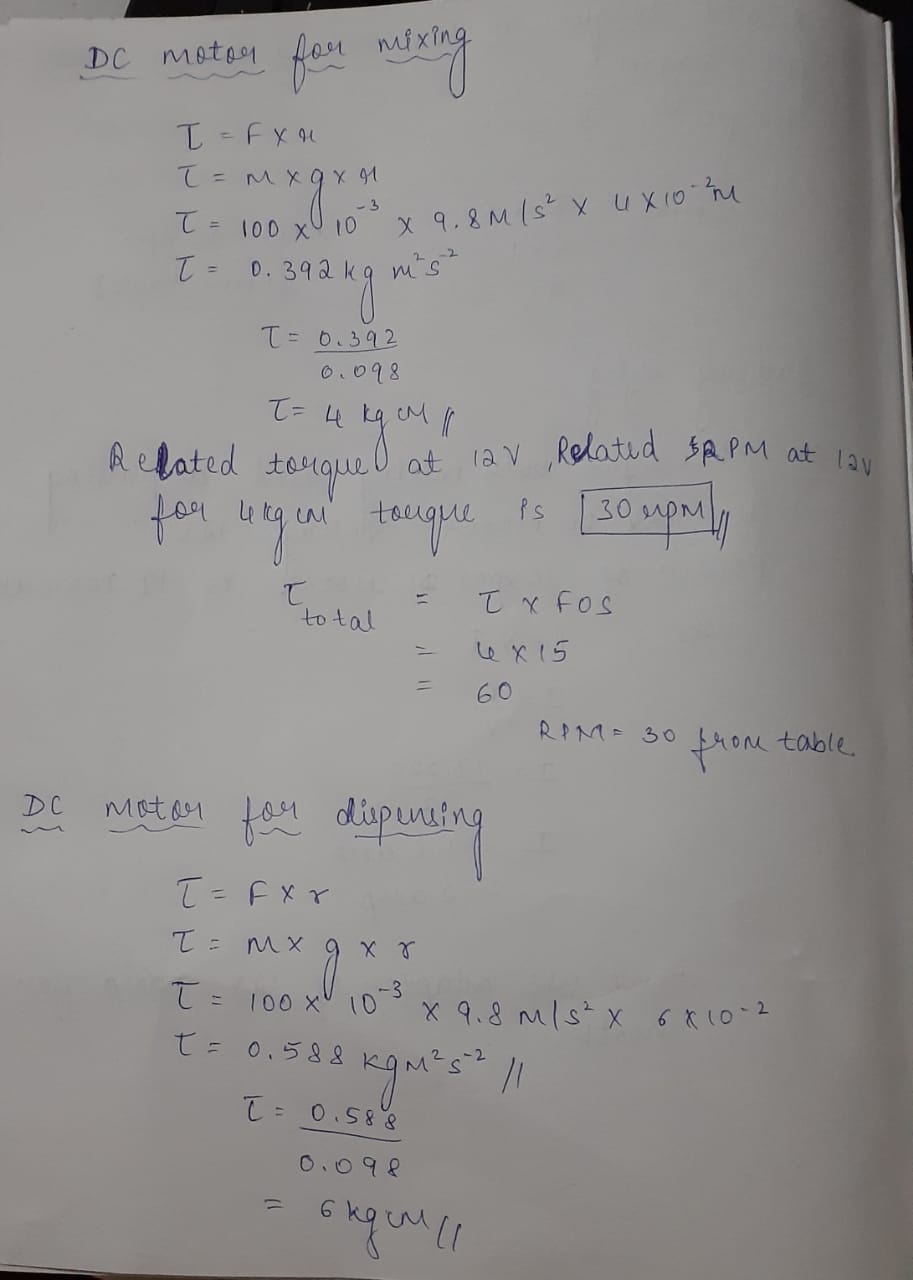 DC motor for mixing
τ = F x r
τ = m x g x r
τ = 100 x 10⁻³ x 9.8 m/s² x 4 x 10⁻² m
τ = 0.392 kg m² s⁻²
τ = 0.392
0.098
τ = 4 kg cm //
Related torque at 12V, Related RPM at 12V
for 4 kg cm torque is 30 rpm //
τ total = τ x FOS
= 4 x 15
= 60
RPM = 30 from table.
DC motor for dispensing
τ = F x r
τ = m x g x r
τ = 100 x 10⁻³ x 9.8 m/s² x 6 x 10⁻²
τ = 0.588 kg m² s⁻² //
τ = 0.588
0.098
= 6 kg cm //